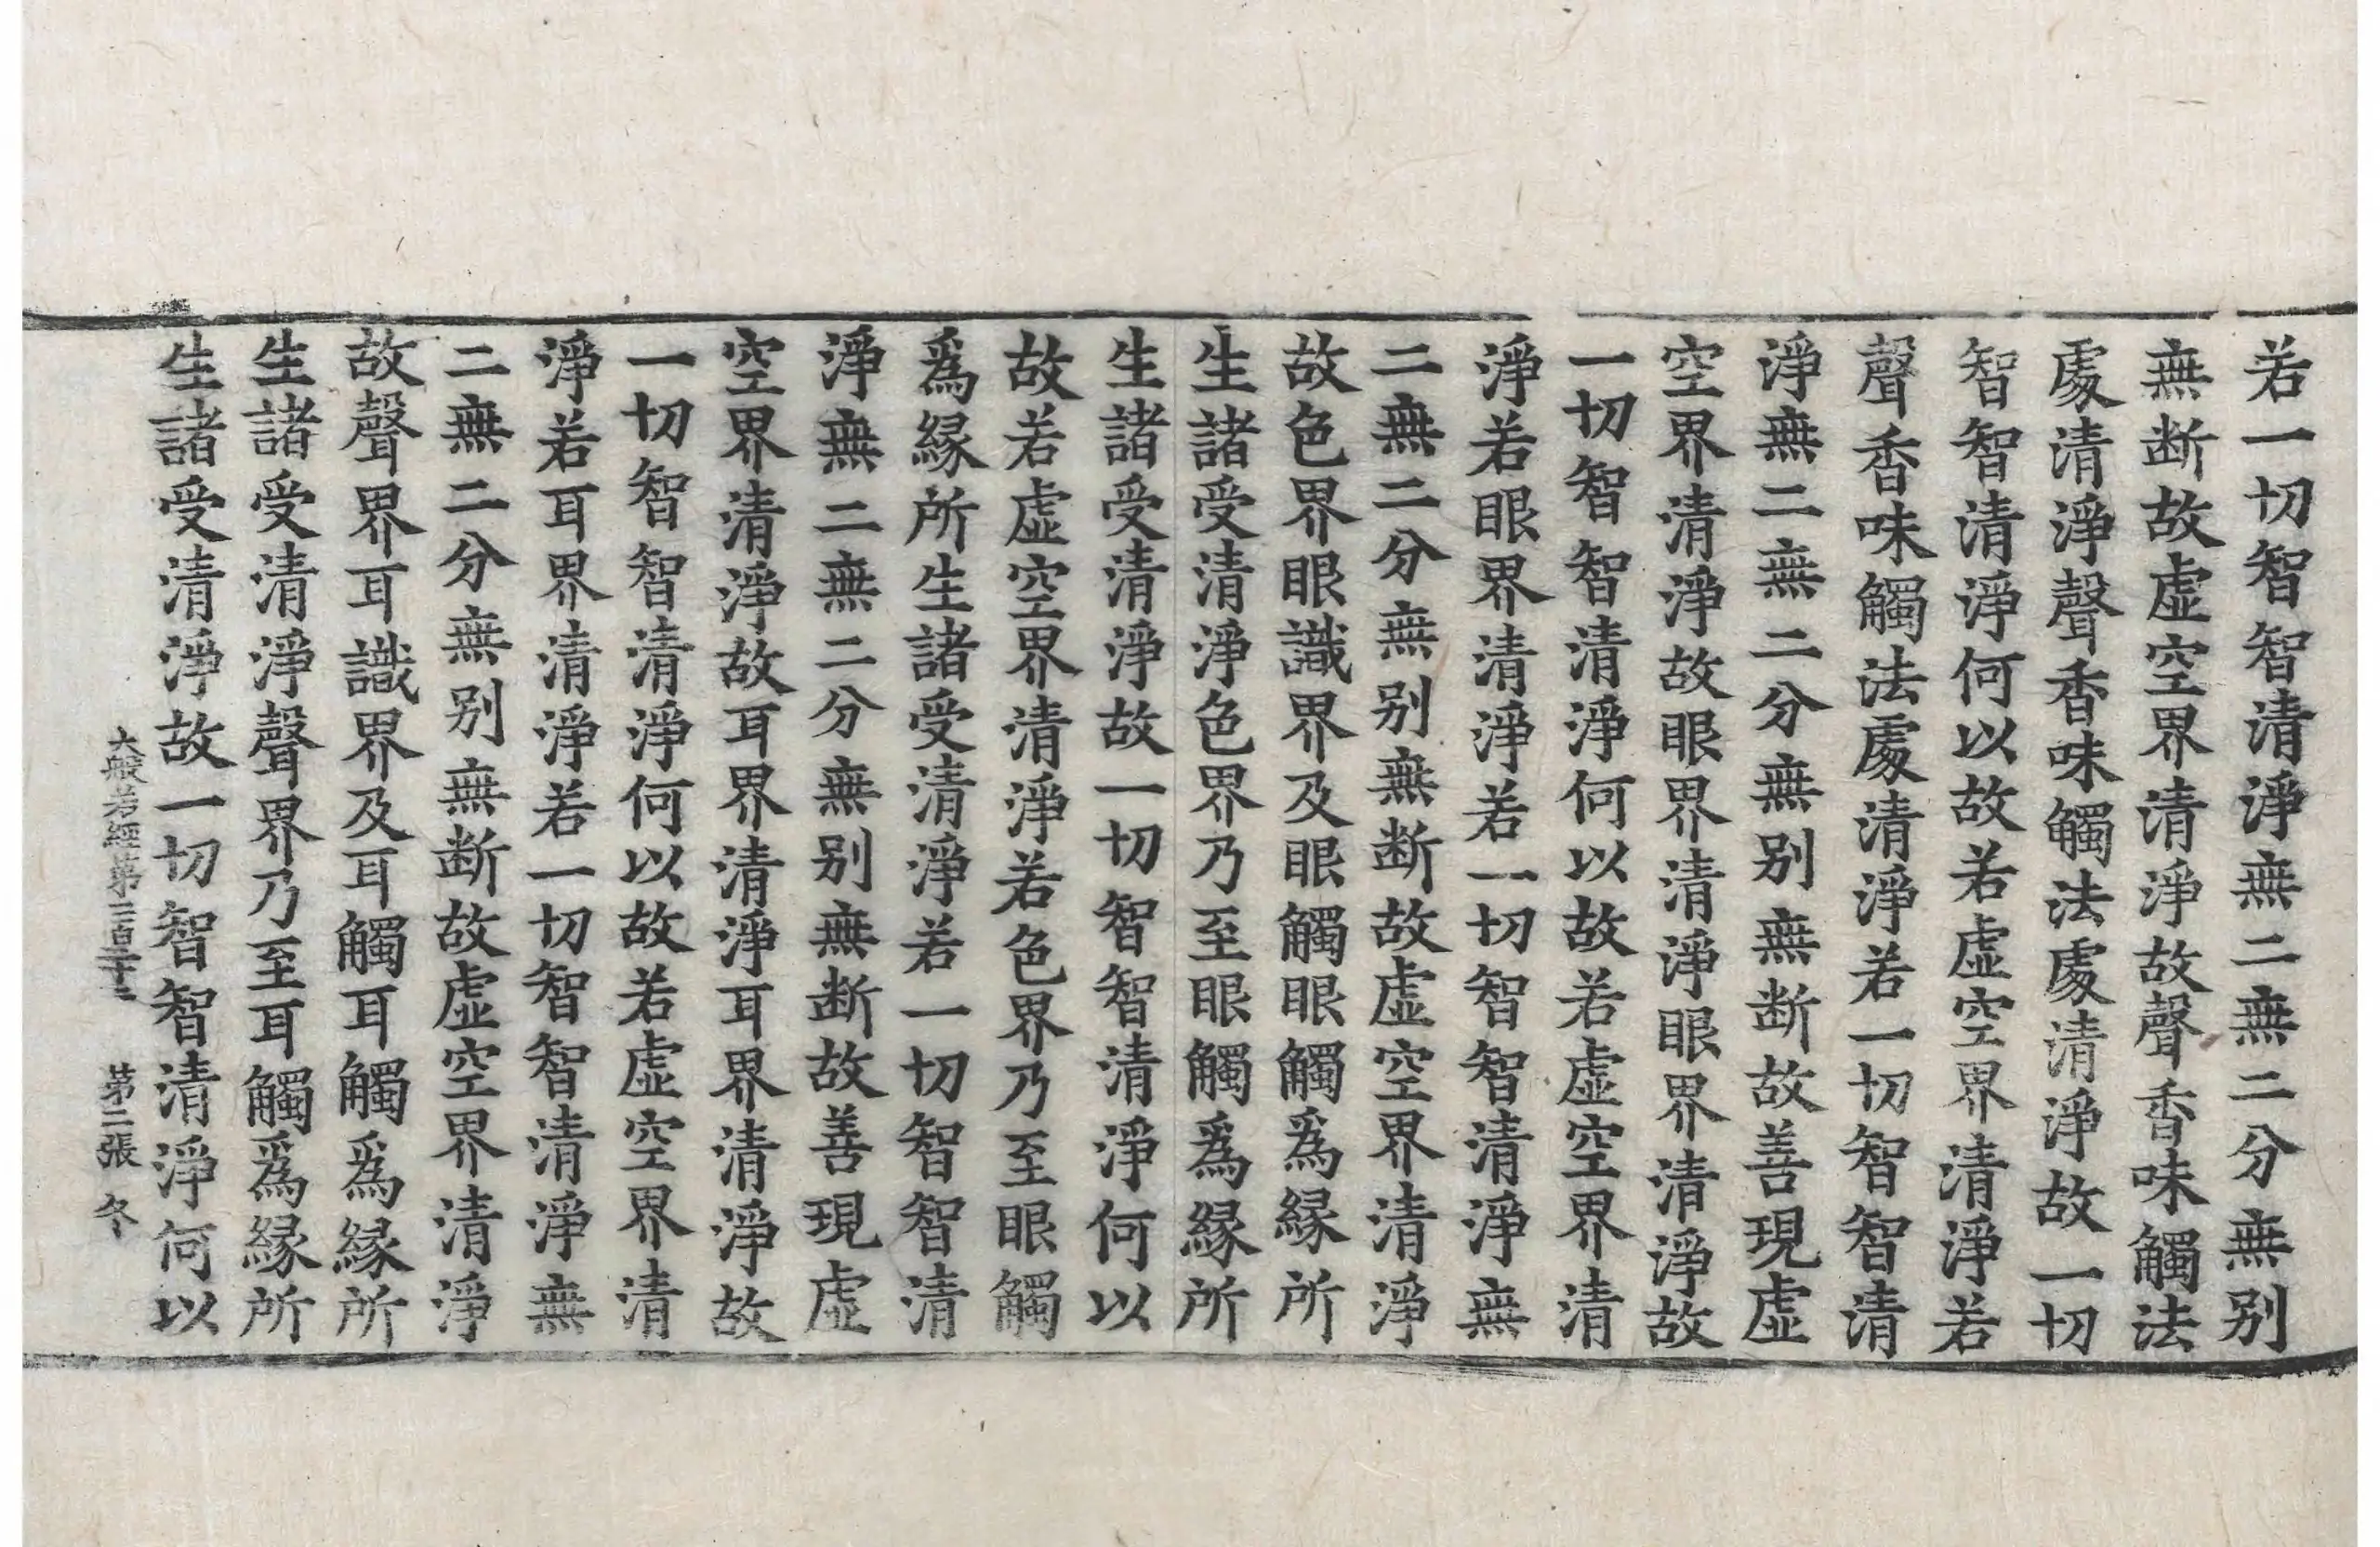 若一切智智清淨無二無二分無別
無断故虛空界清淨故聲香味觸法
處清淨聲香味觸法處清淨故一切
智智清淨何以故若虛空界清淨若
聲香味觸法處清淨若一切智智清
淨無二無二分無別無断故善現虛
空界清淨故眼界清淨眼界清淨故
一切智智清淨何以故若虛空界清
淨若眼界清淨若一切智智清淨無
二無二分無別無断故虛空界清淨
故色界眼識界及眼觸眼觸爲縁所
生諸受清淨色界乃至眼觸爲縁所
生諸受清淨故一切智智清淨何以
故若虛空界清淨若色界乃至眼觸
爲縁所生諸受清淨若一切智智清
淨無二無二分無別無断故善現虛
空界清淨故耳界清淨耳界清淨故
一切智智清淨何以故若虛空界清
淨若耳界清淨若一切智智清淨無
二無二分無別無断故虛空界清淨
故聲界耳識界及耳觸耳觸爲縁所
生諸受清淨聲界乃至耳觸爲縁所
生諸受清淨故一切智智清淨何以
大般若經第二百二十二 第二張 冬